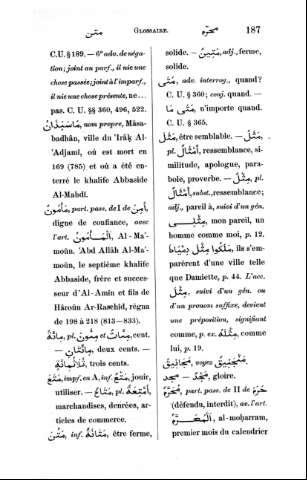 متن
GLOSSAIRE.
محرّم
187
C.U. § 189. — 6° adv. de néga-
tion; joint au parf., il nie une
chose passée; joint à l'imparf.,
il nie une chose présente, ne...
pas. C. U. §§ 360, 496, 522.
مَاسَبَذَانُ, nom propre, Mâsa-
badhân, ville du ʿIrâḳ Al-
ʿAdjamî, où est mort en
169 (785) et où a été en-
terré le khalife Abbaside
Al-Mahdî.
مَأْمُونٌ, part. pass. de I de أَمِنَ,
digne de confiance, avec
l'art. الْمَأْمُونُ, Al-Ma'-
moûn. ʿAbd Allâh Al-Ma'-
moûn, le septième khalife
Abbaside, frère et succes-
seur d'Al-Amîn et fils de
Hâroûn Ar-Raschîd, régna
de 198 à 218 (813—833).
مِائَةٌ, pl. مِئُونَ et مِئَاتٌ, cent.
— مِائَتَانِ, deux cents. —
ثَلَاثُمِائَةٍ, trois cents.
مَتَعَ, impf. en A, inf. مَتْعٌ, jouir,
utiliser. — مَتَاعٌ, pl. أَمْتِعَةٌ,
marchandises, denrées, ar-
ticles de commerce.
مَتُنَ, inf. مَتَانَةٌ, être ferme,
solide. — مَتِينٌ, adj., ferme,
solide.
مَتَى, adv. interrog., quand?
C. U. § 360; conj. quand. —
مَتَى مَا, n'importe quand.
C. U. § 365.
مَثَلَ, être semblable. — مَثَلٌ,
pl. أَمْثَالٌ, ressemblance, si-
militude, apologue, para-
bole, proverbe. — مِثْلٌ, pl.
أَمْثَالٌ, subst., ressemblance;
adj., pareil à, suivi d'un gén.
مِثْلِي, mon pareil, un
homme comme moi, p. 12.
مَلَكُوا مِثْلَ دِمْيَاطَ, ils s'em-
parèrent d'une ville telle
que Damiette, p. 44. L'acc.
مِثْلَ, suivi d'un gén. ou
d'un pronom suffixe, devient
une préposition, signifiant
comme, p. ex. مِثْلَهُ, comme
lui, p. 19.
مَنْجَنِيقٌ, voyez مَجَانِيقُ
مجد — مَجْدٌ, gloire.
مُحَرَّمٌ, part. pass. de II de حَرَمَ
(défendu, interdit), av. l'art.
الْمُحَرَّمُ, al-moḥarram,
premier mois du calendrier